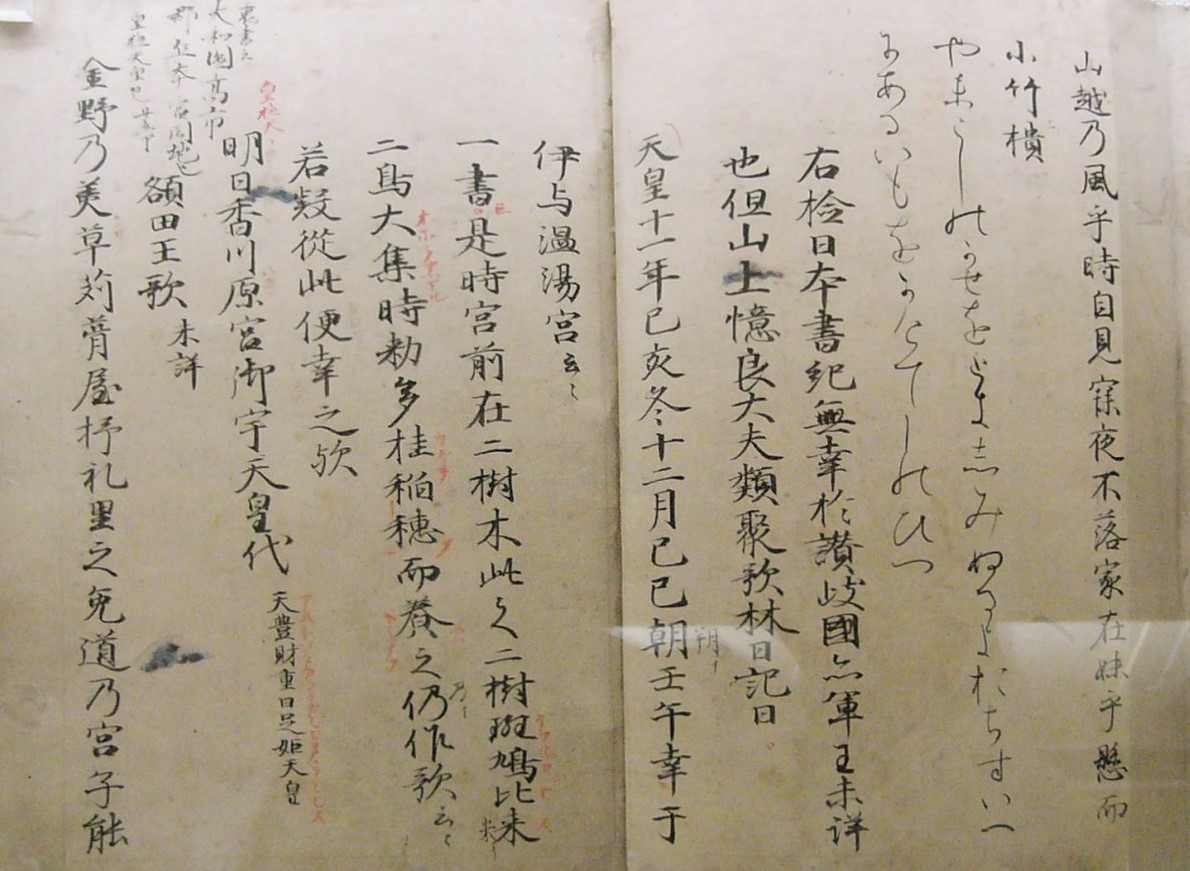 山越乃風乎時自見寐夜不落家在妹乎懸而
小竹樻
やまこしのかせをときしみぬるよおちすいへ
にあるいもをかけてしのひつ
右検日本書紀無幸於讃岐國亦軍王未詳
也但山上憶良大夫類聚歌林曰記曰
天皇十一年己亥冬十二月己巳朝壬午幸于
朔
伊与温湯宮云々
一書是時宮前在二樹木此之二樹斑鳩比来
米
二鳥大集時勅多桂稲穂而養之仍作歌云々
乃
若疑従此便幸之歟
明日香川原宮御宇天皇代 天豊財重日足姫天皇
皇極天
裏書云
大和國高市
額田王歌 未詳
金野乃美草苅葺屋杼礼里之兔道乃宮子能